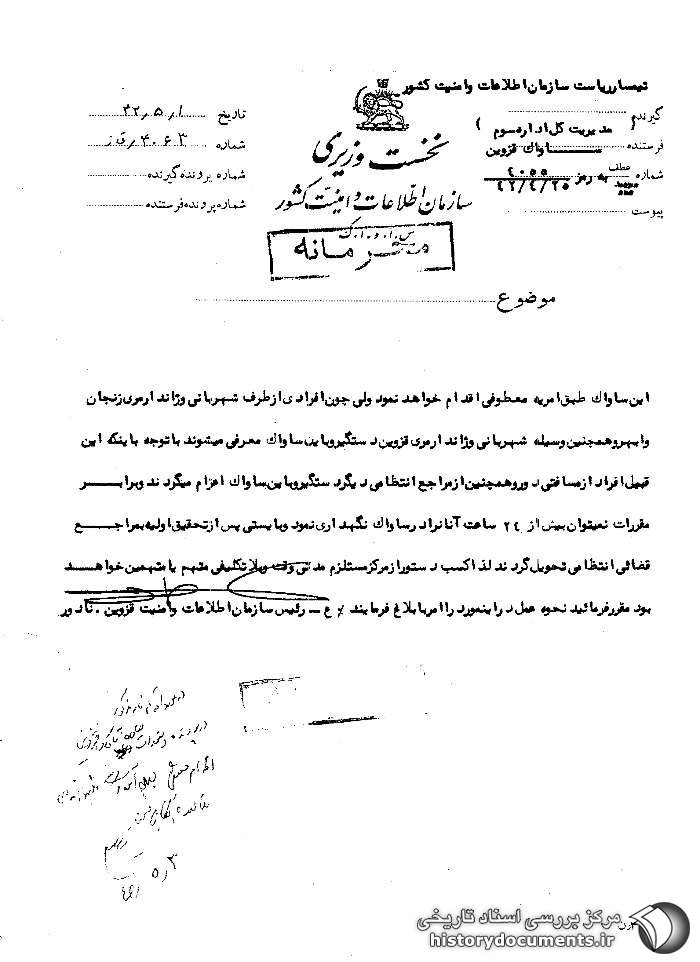 تیمسار ریاست سازمان اطلاعات و امنیت کشور
گیرنده
( مدیریت کل اداره سوم )
فرستنده ساواک قزوین
شماره عطف به رمز ۴۰۵۵
۴۲/۴/۲۵
پیوست
نخست وزیری
سازمان اطلاعات و امنیت کشور
س.ا.و.ا.ک
تاریخ ۴۲٫۵٫۱
شماره ۴۰۶۳٫ق ز
شماره پرونده گیرنده
شماره پرونده فرستنده
محرمانه
موضوع
این ساواک طبق امریه معطوفی اقدام خواهد نمود ولی چون افرادی از طرف شهربانی و ژاندارمری زنجان
و ابهر و همچنین وسیله شهربانی و ژاندارمری قزوین دستگیر و باین ساواک معرفی میشوند با توجه باینکه این
قبیل افراد از مسافتی دور و همچنین از مراجع انتظامی دیگر دستگیر و باین ساواک اعزام میگردند و برابر
مقررات نمیتوان بیش از ۲۴ ساعت آنانرا در ساواک نگهداری نمود و بایستی پس از تحقیق اولیه بمراجع
قضائی انتظامی تحویل گردند لذا کسب دستور از مرکز مستلزم مدتی وقت و بلاتکلیفی متهم یا متهمین خواهد
بود مقرر فرمائید نحوه عمل در اینمورد را امر بابلاغ فرمایند ٪ ع ـ رئیس سازمان اطلاعات و امنیت قزوین . نادور
۵٫۳
مرکز بررسی اسناد تاریخی
historydocuments.ir